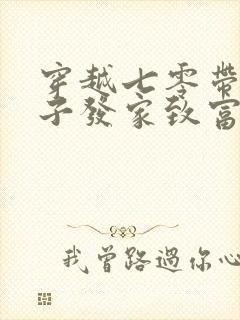 穿越七零帶
子發家致富
我曾路過你心